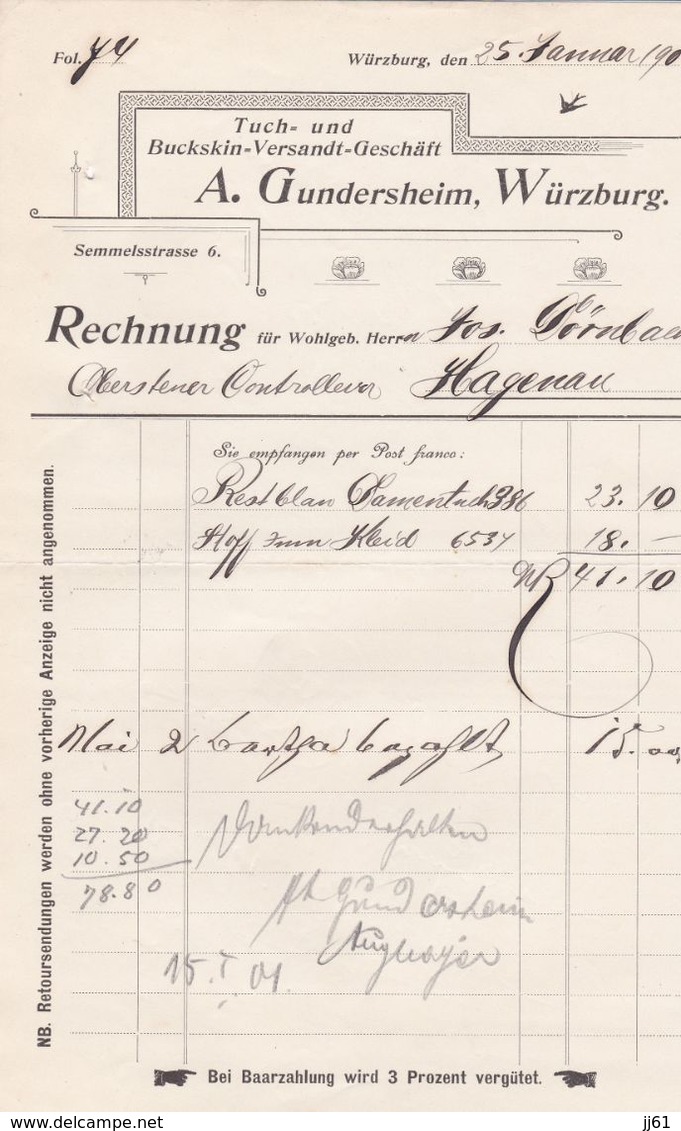 Fol. 74
Würzburg, den 25. Januar 190
Tuch- und
Buckskin-Versandt-Geschäft
A. Gundersheim, Würzburg.
Semmelsstrasse 6.
Rechnung für Wohlgeb. Herrn Jos. Dörnbach
Hagenau
Sie empfangen per Post franco:
Rest blau Damentuch 386 23.10
Stoff zum Kleid 6537 18.—
M 41.10
Mai 2 bezahlt 15.00
41.10
27.20
10.50
78.80
Dankend erhalten
Gundersheim
15. I. 01.
NB. Retoursendungen werden ohne vorherige Anzeige nicht angenommen.
Bei Baarzahlung wird 3 Prozent vergütet.
jj61